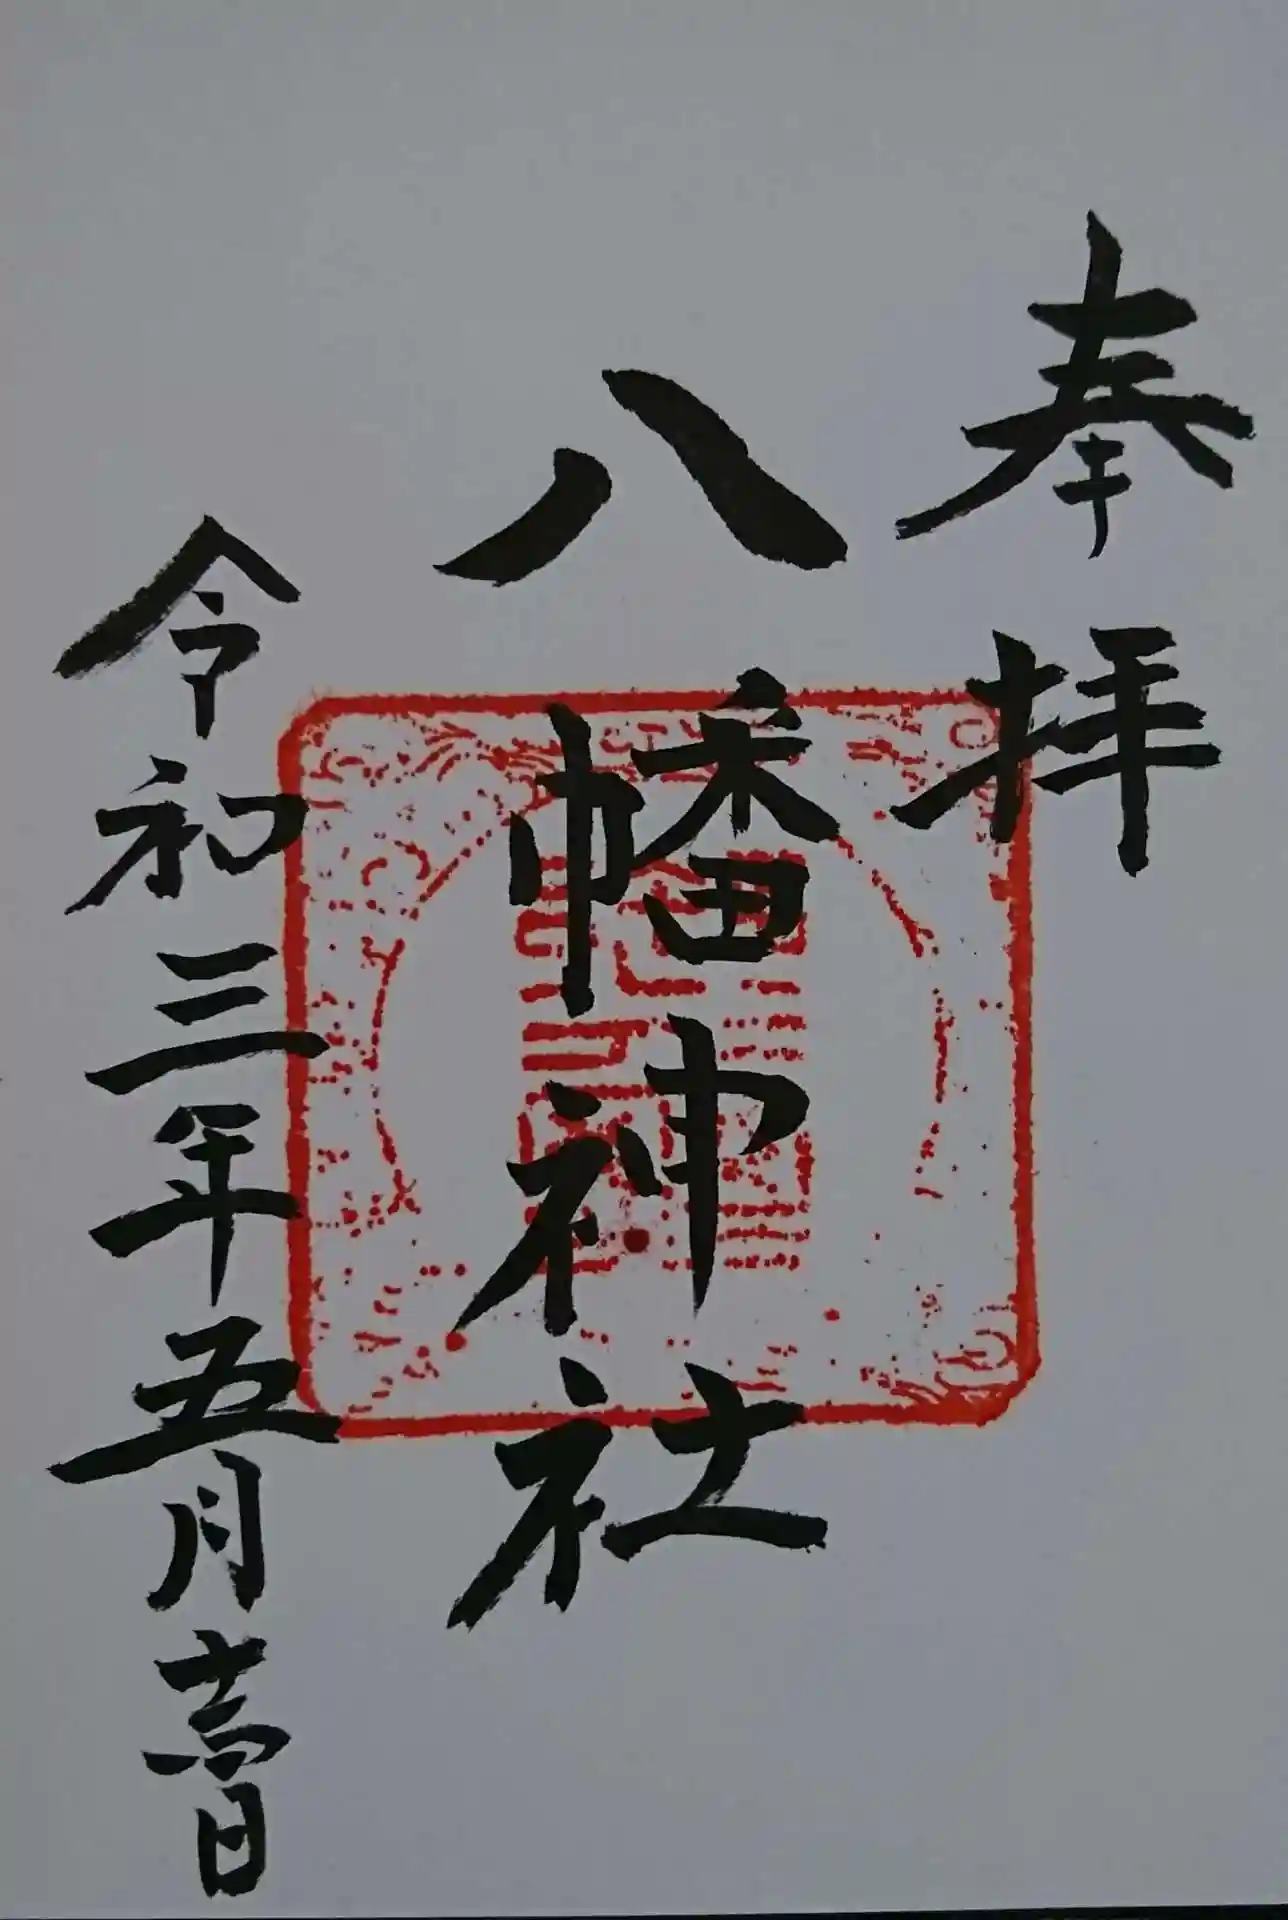 奉拝
八幡神社
令和三年五月十六日